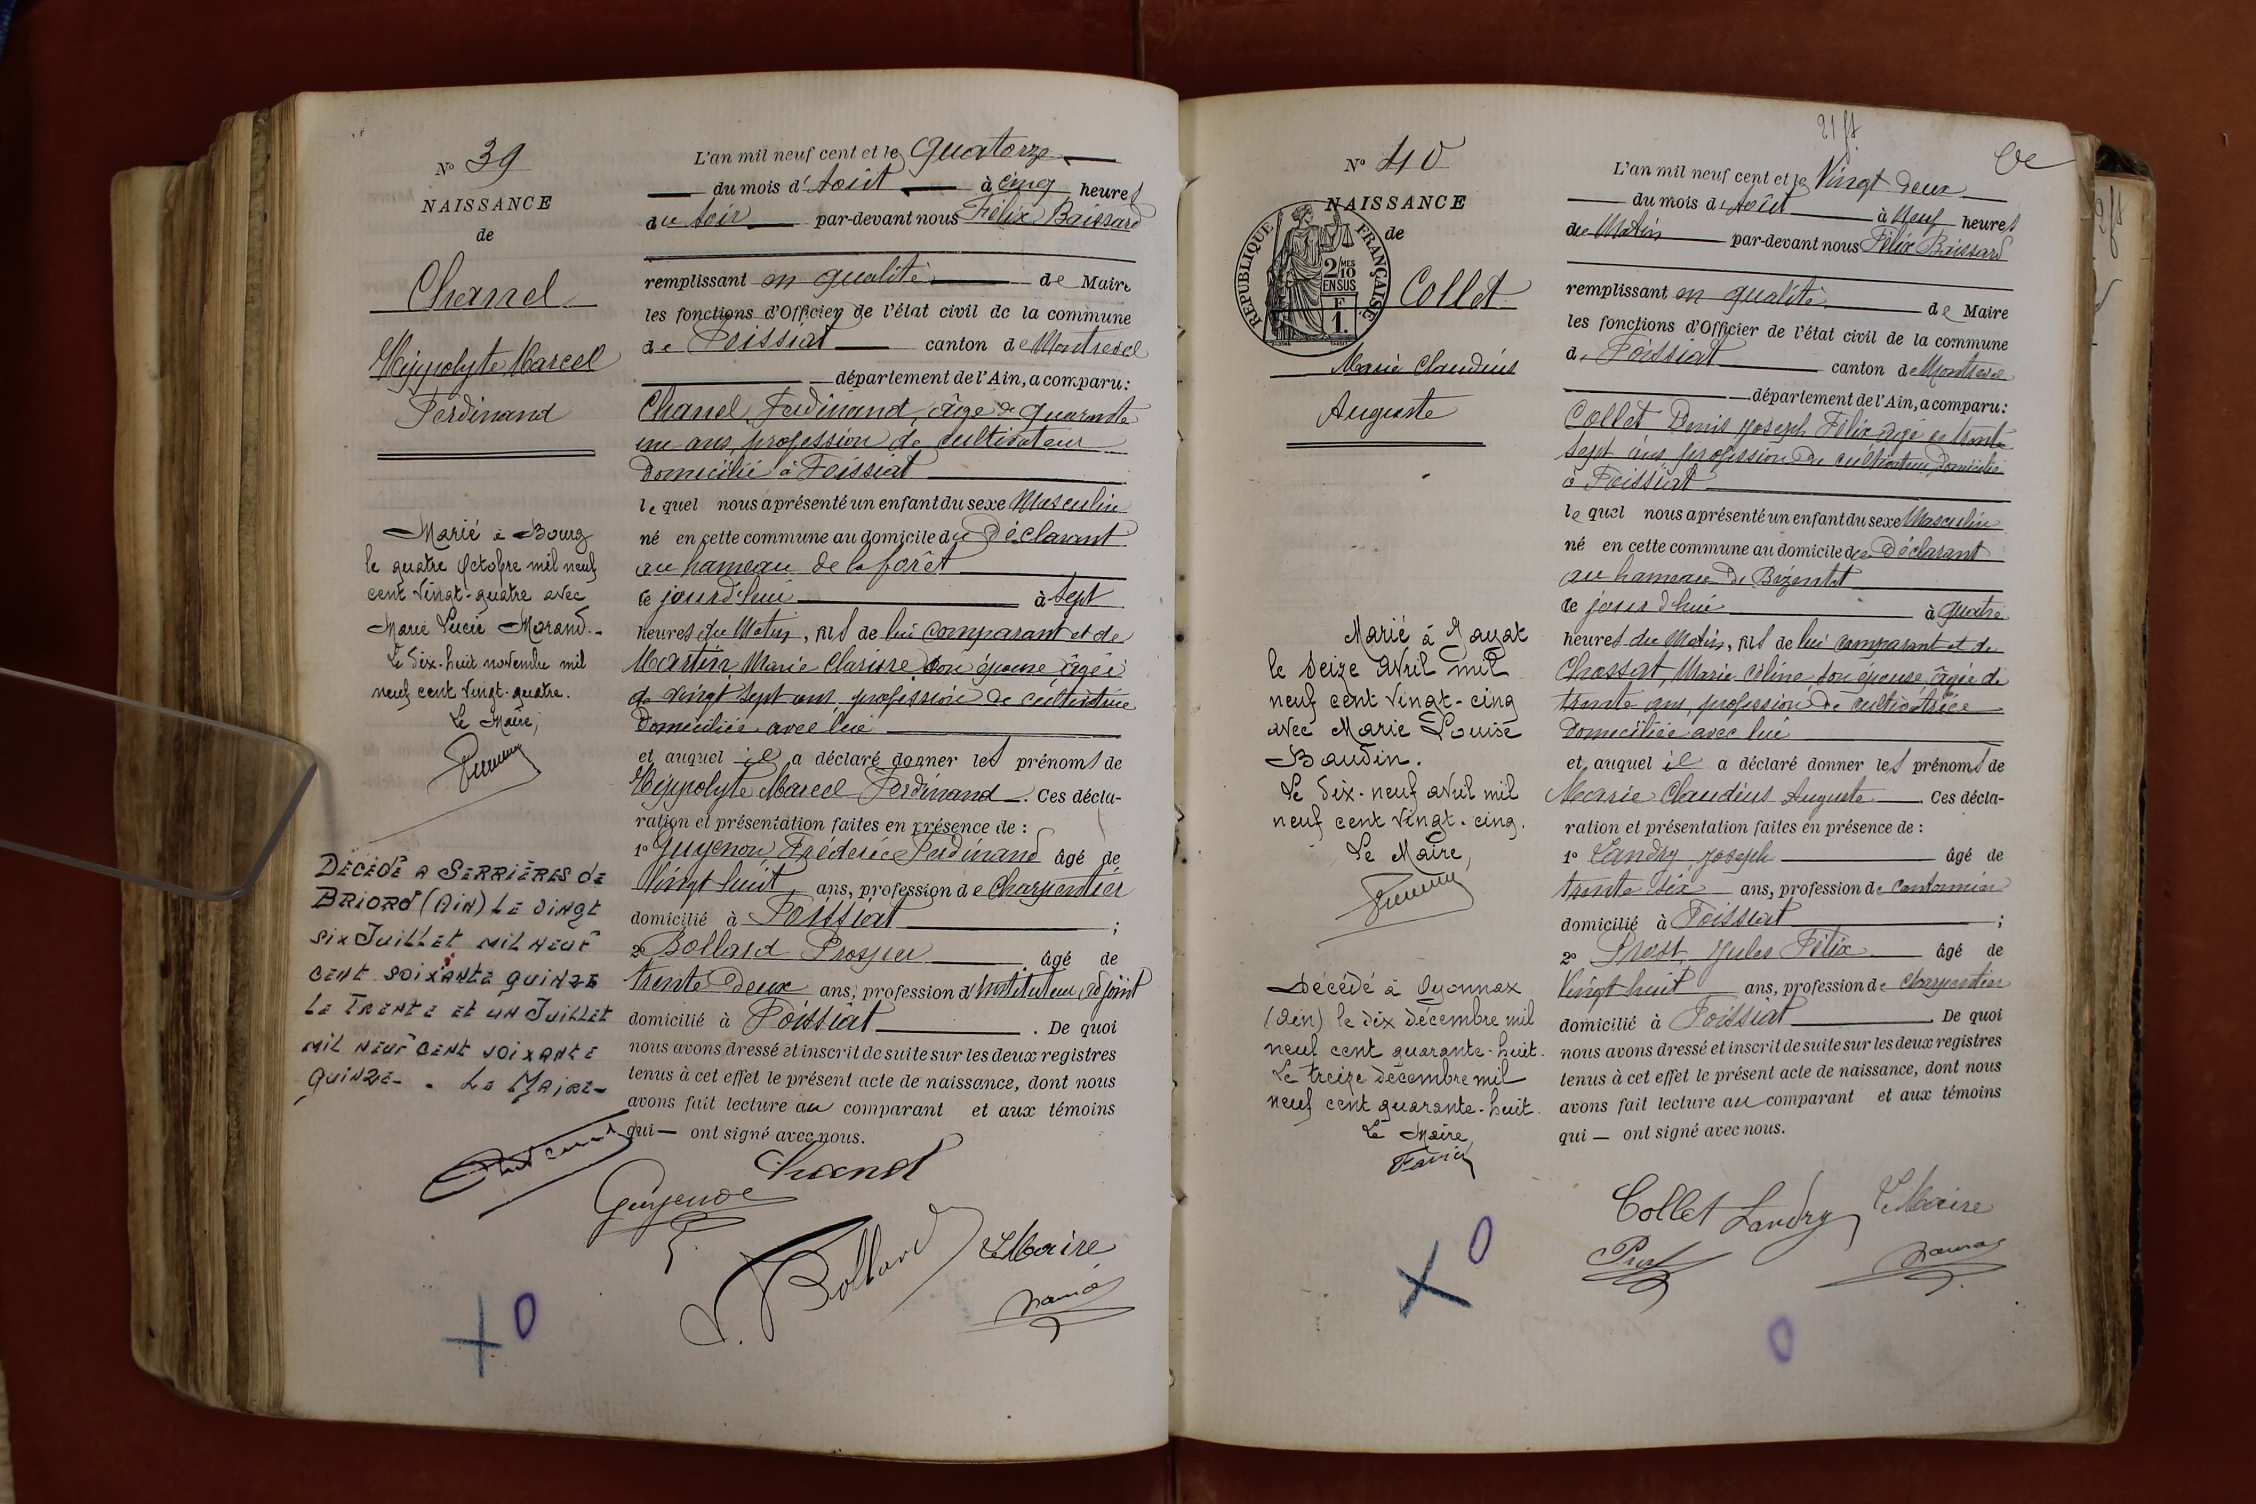 N° 39
NAISSANCE
de
Chanel
Hippolyte Marcel
Ferdinand
Marié à Bourg
le quatre Octobre mil neuf
cent vingt-quatre avec
Marie Lucie Morand.-
Le dix-huit novembre mil
neuf cent vingt-quatre.
Le Maire,
DÉCÉDÉ A SERRIÈRES DE
BRIORD (AIN) LE VINGT
SIX JUILLET MIL NEUF
CENT SOIXANTE QUINZE
LE TRENTE ET UN JUILLET
MIL NEUF CENT SOIXANTE
QUINZE - . LE MAIRE -
L'an mil neuf cent et le quatorze
du mois d'Août à cinq heures
du soir par-devant nous Félix Baissard
remplissant en qualité de Maire
les fonctions d'Officier de l'état civil de la commune
de Foissiat canton de Montrevel
département de l'Ain, a comparu:
Chanel Ferdinand, âgé de quarante
un ans, profession de cultivateur
domicilié à Foissiat
lequel nous a présenté un enfant du sexe Masculin
né en cette commune au domicile du Déclarant
au hameau de la forêt
ce jourd'hui à sept
heures du Matin, fils de lui comparant et de
Martin Marie Clarisse son épouse âgée
de vingt sept ans, profession de cultivatrice
domiciliée avec lui
et auquel il a déclaré donner les prénoms de
Hippolyte Marcel Ferdinand. Ces décla-
ration et présentation faites en présence de :
1° Guyenon Frédéric Ferdinand âgé de
vingt huit ans, profession de charpentier
domicilié à Foissiat ;
2° Bolland Prosper âgé de
trente deux ans, profession d'instituteur adjoint
domicilié à Foissiat. De quoi
nous avons dressé et inscrit de suite sur les deux registres
tenus à cet effet le présent acte de naissance, dont nous
avons fait lecture au comparant et aux témoins
qui — ont signé avec nous.
Chanel
P. Bolland
Le Maire
21 ft
N° 40
NAISSANCE
de
RÉPUBLIQUE FRANÇAISE
2/10 MES
EN SUS
F
1.
Collet
Marie Claudius
Auguste
Marié à Jayat
le seize avril mil
neuf cent vingt-cinq
avec Marie Louise
Baudin.
Le dix-neuf avril mil
neuf cent vingt-cinq.
Le Maire,
Décédé à Oyonnax
(Ain) le dix décembre mil
neuf cent quarante-huit.
Le treize décembre mil
neuf cent quarante-huit.
Le Maire,
L'an mil neuf cent et le Vingt deux
du mois d'Août à Neuf heures
du Matin par-devant nous Félix Baissard
remplissant en qualité de Maire
les fonctions d'Officier de l'état civil de la commune
de Foissiat canton de Montrevel
département de l'Ain, a comparu:
Collet Denis Joseph Félix âgé de trente
sept ans, profession de cultivateur, domicilié
à Foissiat
lequel nous a présenté un enfant du sexe Masculin
né en cette commune au domicile du Déclarant
au hameau de Bizentet
ce jours d'hui à quatre
heures du Matin, fils de lui comparant et de
Chossat, Marie Céline son épouse âgée de
trente ans, profession de cultivatrice
domiciliée avec lui
et auquel il a déclaré donner les prénoms de
Marie Claudius Auguste. Ces décla-
ration et présentation faites en présence de :
1° Landry Joseph âgé de
trente six ans, profession de cantonnier
domicilié à Foissiat ;
2° Prost Jules Félix âgé de
vingt huit ans, profession de charpentier
domicilié à Foissiat. De quoi
nous avons dressé et inscrit de suite sur les deux registres
tenus à cet effet le présent acte de naissance, dont nous
avons fait lecture au comparant et aux témoins
qui — ont signé avec nous.
Collet Landry Le Maire